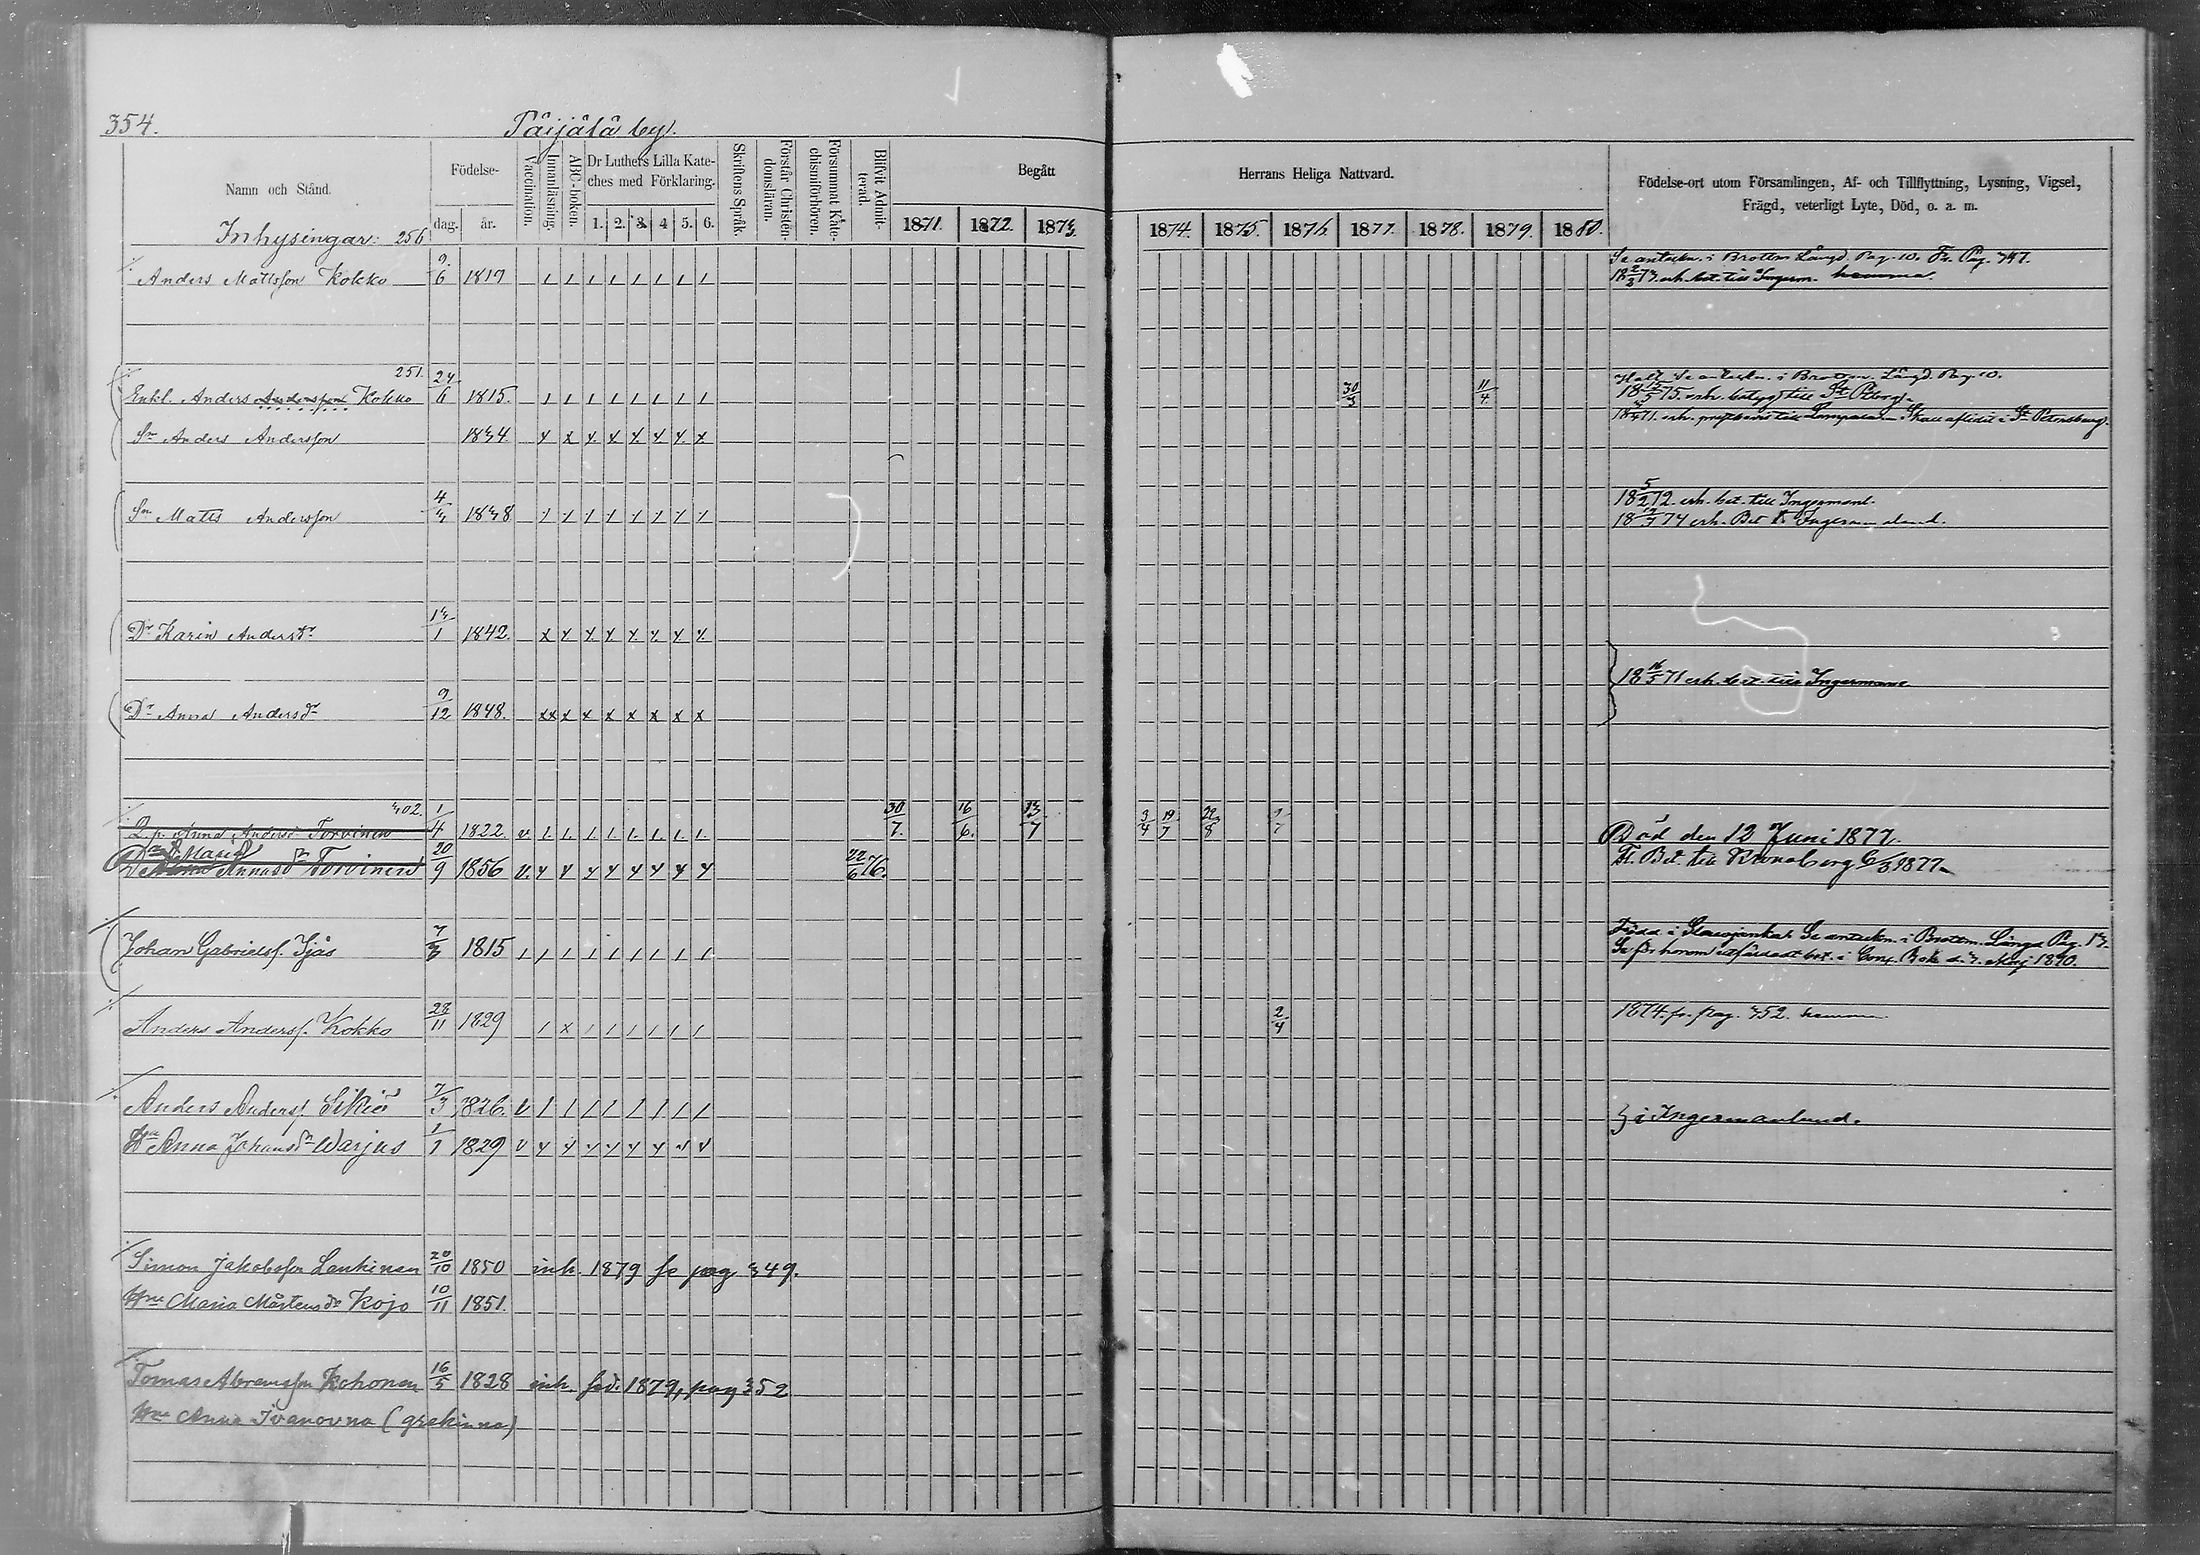 354.
Päijälä by.
Namn och Stånd.
Födelse-
dag. år.
Vaccination.
Innanläsning.
ABC-boken.
Dr Luthers Lilla Kate-
ches med Förklaring.
1. 2. 3. 4 5. 6.
Skriftens Språk.
Förstår Christen-
domsläran.
Försummat Kate-
chismiförhören.
Blifvit Admit-
terad.
Begått
Herrans Heliga Nattvard.
1871. 1872. 1873. 1874. 1875. 1876 1877. 1878. 1879. 1880.
Födelse-ort utom Församlingen, Af- och Tillflyttning, Lysning, Vigsel,
Frägd, veterligt Lyte, Död, o. a. m.
Inhysingar: 256
Se anteckn. i Brottm. Längd. Pag. 10. Fr. Pag. 347.
Anders Mattsson Kokko 9/6 1819 1 1 1 1 1 1 1 1 18 2/3 73 erh. bet. till Ingerm. hemma.
251.
Halt. Se anteckn. i Brottm. Längd. Pag. 10.
Enkl. Anders Andersson Kokko 24/6 1815. 1 1 1 1 1 1 1 1 30/3 11/4. 18 15/5 75. erh. betyg till St. Pbrg.
Sn Anders Andersson 1834 x x x x x x x x
Sn Matts Andersson 4/3 1838 18 5/2 72 erh. bet. till Ingermanl.
18 12/3 74 erh. Bet t. Ingermanland.
Dr Karin Andersdr 13/1 1842 x x x x x x x x
18 16/5 71 erh. bet. till Ingermanl.
Dr Anna Andersdr 9/12 1848. xx x x x x x x x
302.
Anna Andersdr Torvinen 1/4 1822 v. 1. 1. 1 1. 1. 1. 1. 1. 30/7. 16/6. 13/7 3/4 19/7 22/8 9/7 Död den 12 Juni 1877.
Dr Maria Annasdr Torvinen 20/9 1856 v. 22/6 76. Fl. Bet. till Kronoborg 6/3 1877
Johan Gabrielss. Ijäs 7/3 1815 1 1 1 1 1 1 1 1 1 Se anteckn. i Brottm. Längd Pag. 13.
Se för honom utfärdadt bet. i Conc. Bok d. 3. Maj 1890.
Anders Anderss. Kokko 28/11 1829 1 x 1 1 1 1 1 1 2/4 1874. fr. pag. 352. hemma.
Anders Anderss. Sikiö 7/3 1826. v 1 1 1 1 1 1 1 1 } i Ingermanland.
Hu Anna Johansdr Warjus 1/1 1829 v
Simon Jakobsson Lenkinen 20/10 1850 inh. 1879 se pag 349.
Hru Maria Mårtensdr Kojo 10/11 1851.
Tomas Abramsson Kohonen 16/5 1828 inh. sed. 1879, pag 352
Hru Anna Ivanovna (grekinna)